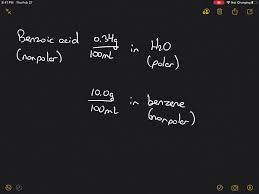 9:41 PM Thu Feb 27
Not Charging
Benzoic acid 0.34g in H2O
(nonpolar) 100mL (polar)
10.0g in benzene
100mL (nonpolar)